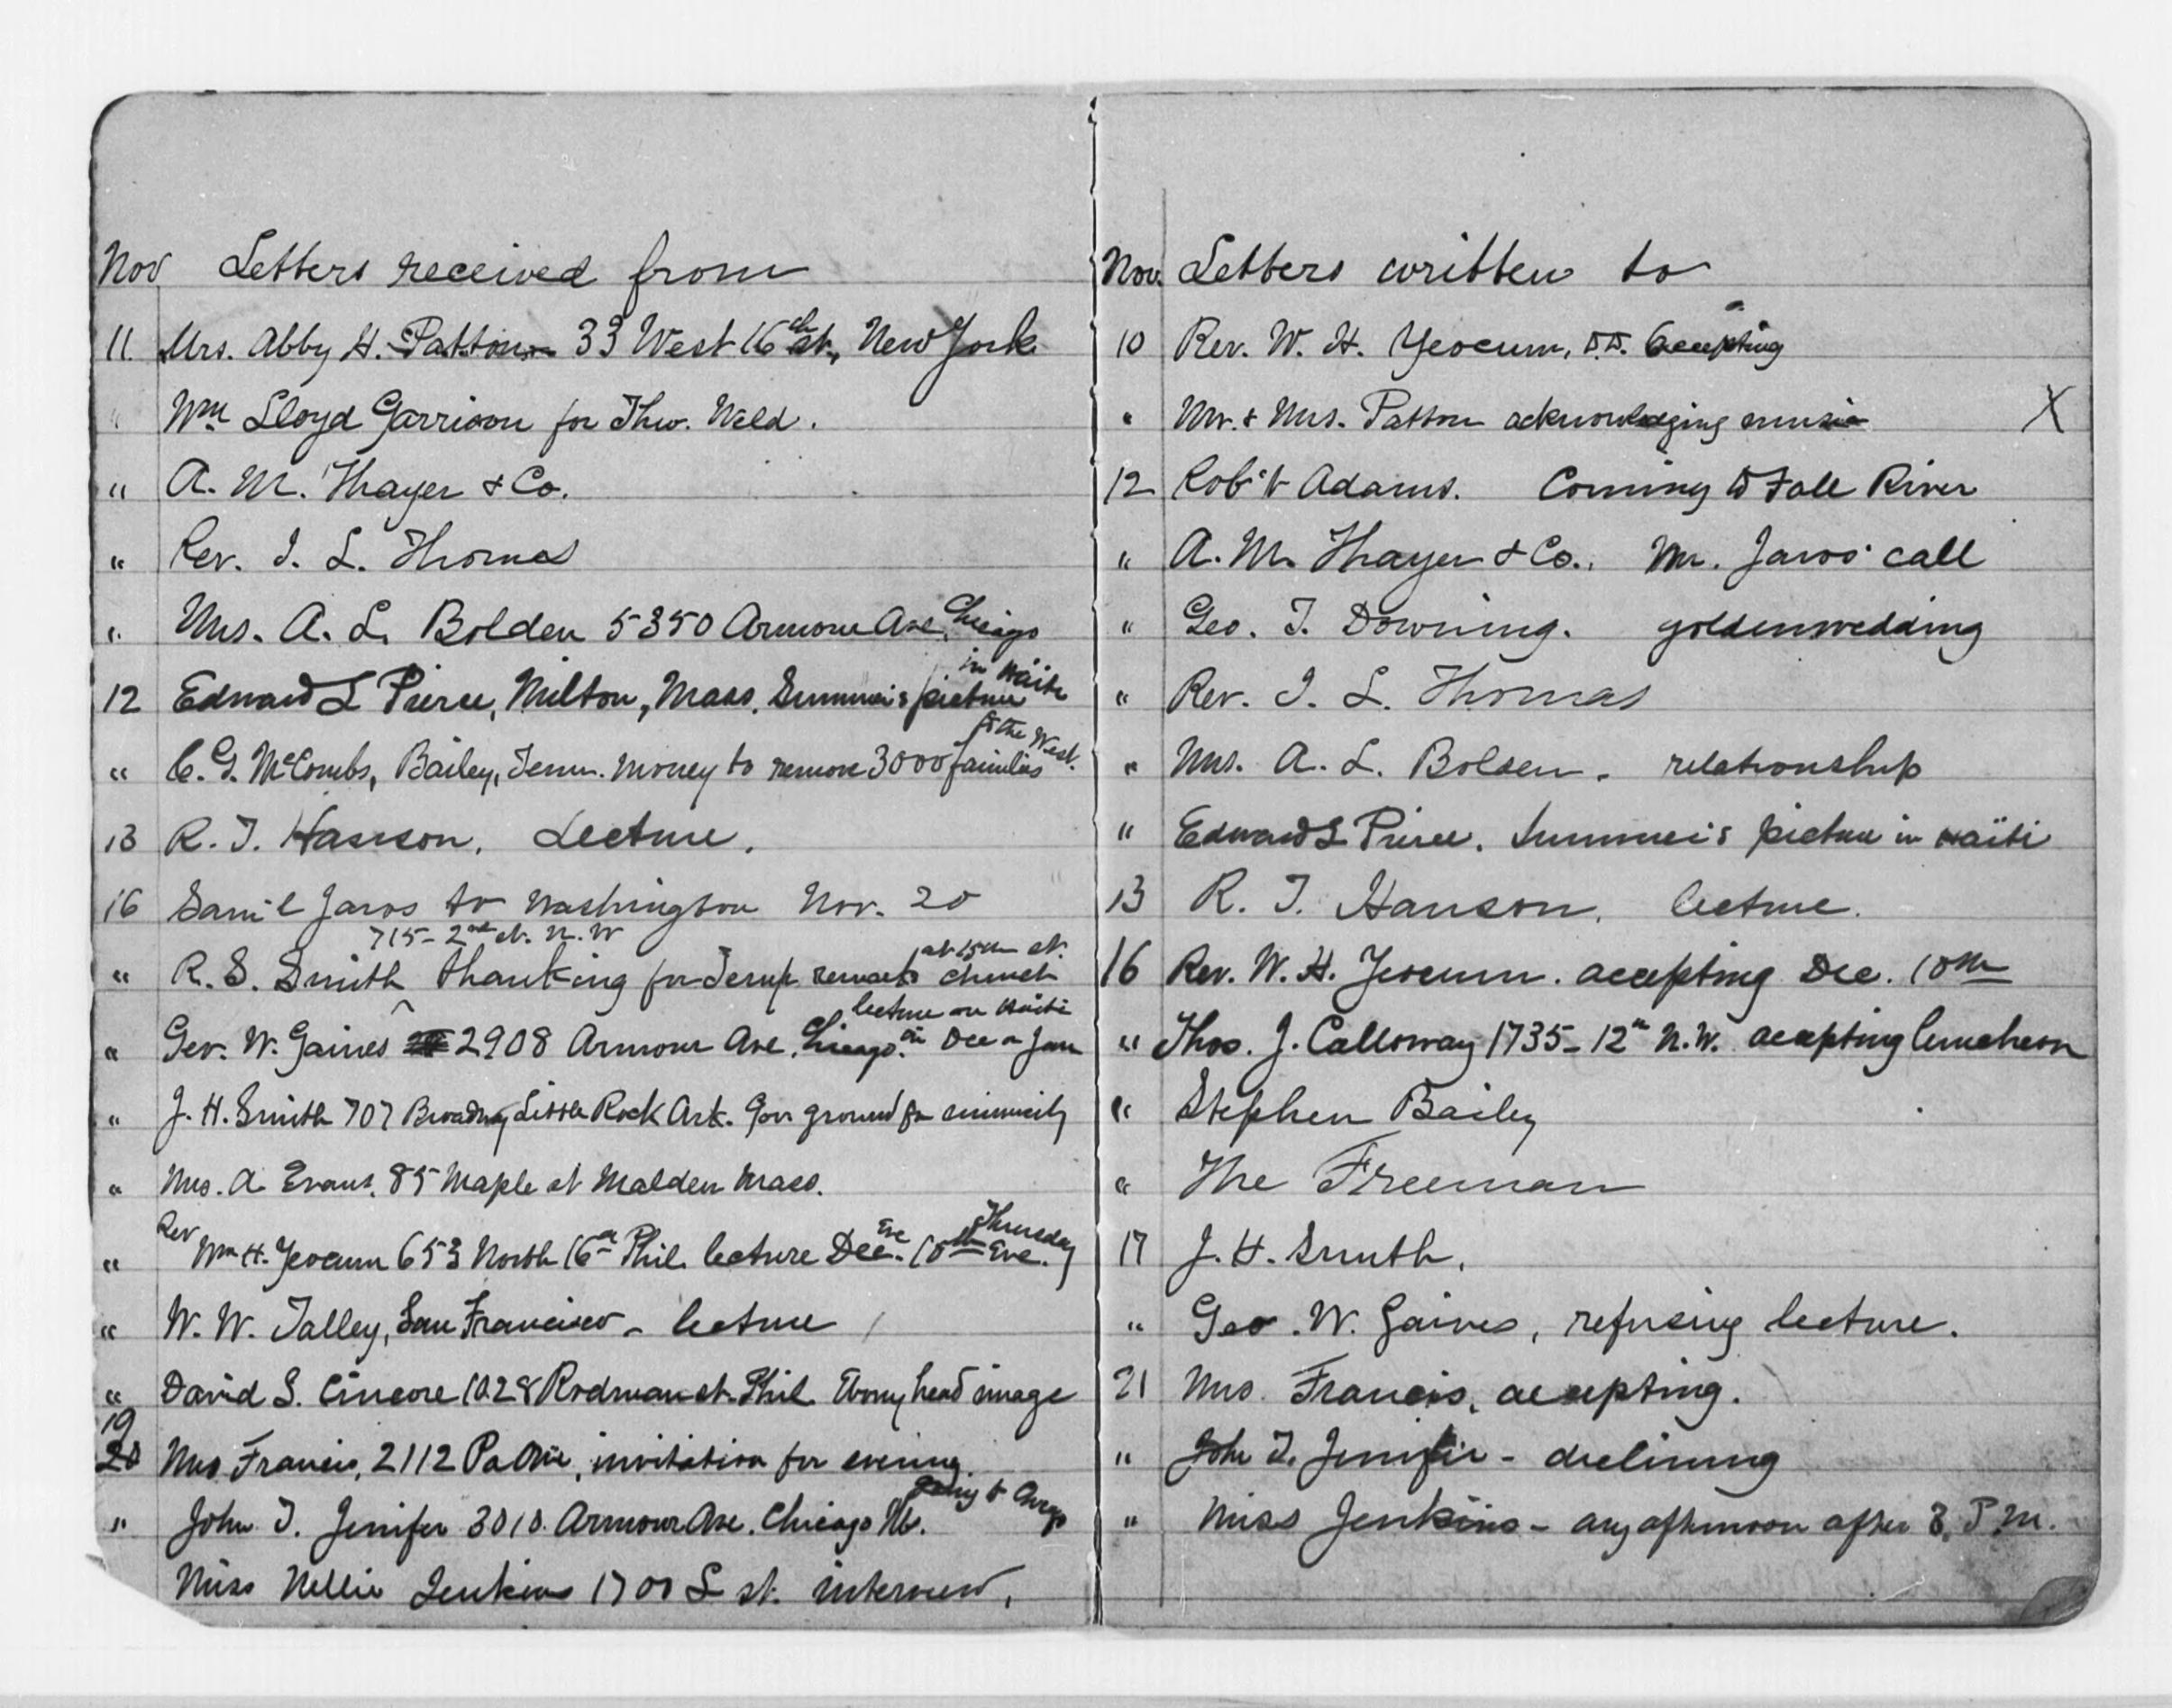 Nov Letters received from
11. Mrs. Abby H. Patton 33 West 16th st., New York
" Wm Lloyd Garrison for Theo. Weld.
" A. M. Thayer & Co.
" Rev. I. L. Thomas
" Mrs. A. L. Bolden 5350 Armour Ave. Chicago
in Haiti
12 Edward L Pierce, Milton, Mass. Sumner's picture
to the West.
" C. G. McCombs, Bailey, Tenn. money to remove 3000 families
13 R. T. Hanson. Lecture.
16 Saml Jaros to Washington Nov. 20
715- 2nd st. N. W
at 15th st.
" R. S. Smith thanking for Temp. remarks church
lecture on Haiti
" Geo. W. Gaines 2908 Armour Ave. Chicago. in Dec or Jan
" J. H. Smith 707 Broadway Little Rock Ark. Gov ground for
" Mrs. A. Evans. 85 Maple st Malden Mass.
Rev Eve Thursday
" Wm H. Yeocum 653 North 16th Phil. lecture Dec. 10th Eve.
" W. W. Talley, San Francisco - lecture
" David S. Cincore 1028 Rodman st. Phil. Ebony head image
19
20 Mrs. Francis, 2112 Pa Ave, invitation for evening.
" John T. Jenifer 3010. Armour Ave. Chicago Ill.
Miss Nellie Jenkins 1700 L st. interview.
Nov. Letters written to
10 Rev. W. H. Yeocum, D.D. accepting
" Mr. & Mrs. Patton acknowledging music X
12 Rob't Adams. Coming to Fall River
" A. M. Thayer & Co., Mr. Jaros' call
" Geo. T. Downing. goldenwedding
" Rev. I. L. Thomas
" Mrs. A. L. Bolden. relationship
" Edward L Pierce. Sumner's picture in Haïti
13 R. T. Hanson. lecture.
16 Rev. W. H. Yeocum. accepting Dec. 10th
" Thos. J. Calloway 1735- 12th N.W. accepting luncheon
" Stephen Bailey
" The Freeman
17 J. H. Smith.
" Geo. W. Gaines, refusing lecture.
21 Mrs. Francis, accepting.
" John T. Jenifer - declining
" Miss Jenkins - any afternoon after 3. P.M.